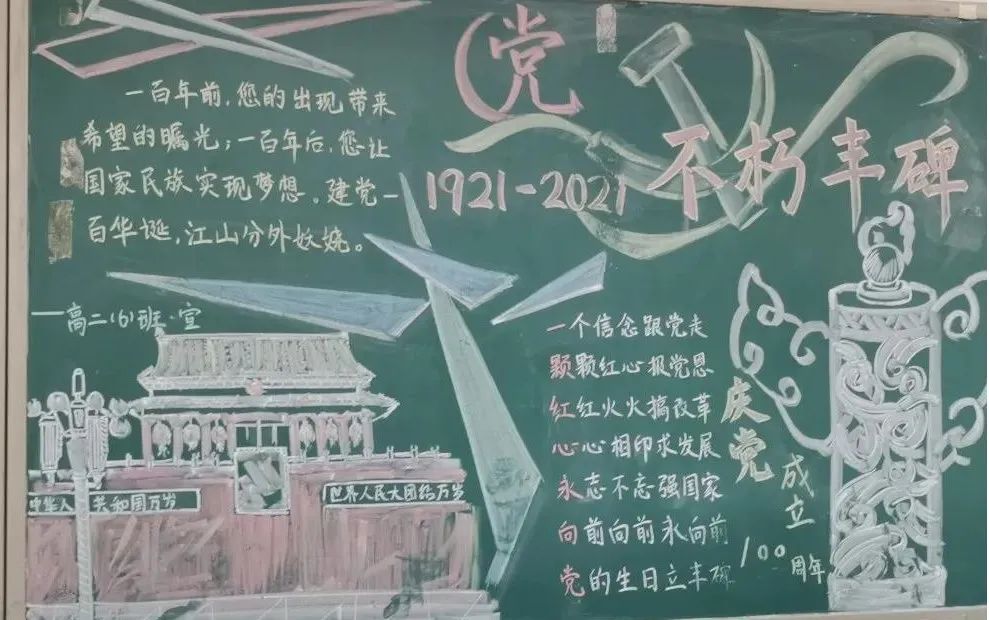 党
1921-2021
不朽丰碑
一百年前，您的出现带来
希望的曙光；一百年后，您让
国家民族实现梦想。建党一
百华诞，江山分外妖娆。
——高二（6）班·宣
中华人民共和国万岁
世界人民大团结万岁
一个信念跟党走
颗颗红心报党恩
红红火火搞改革
心心相印求发展
永志不忘强国家
向前向前永向前
党的生日立丰碑
庆党
成立
100周年